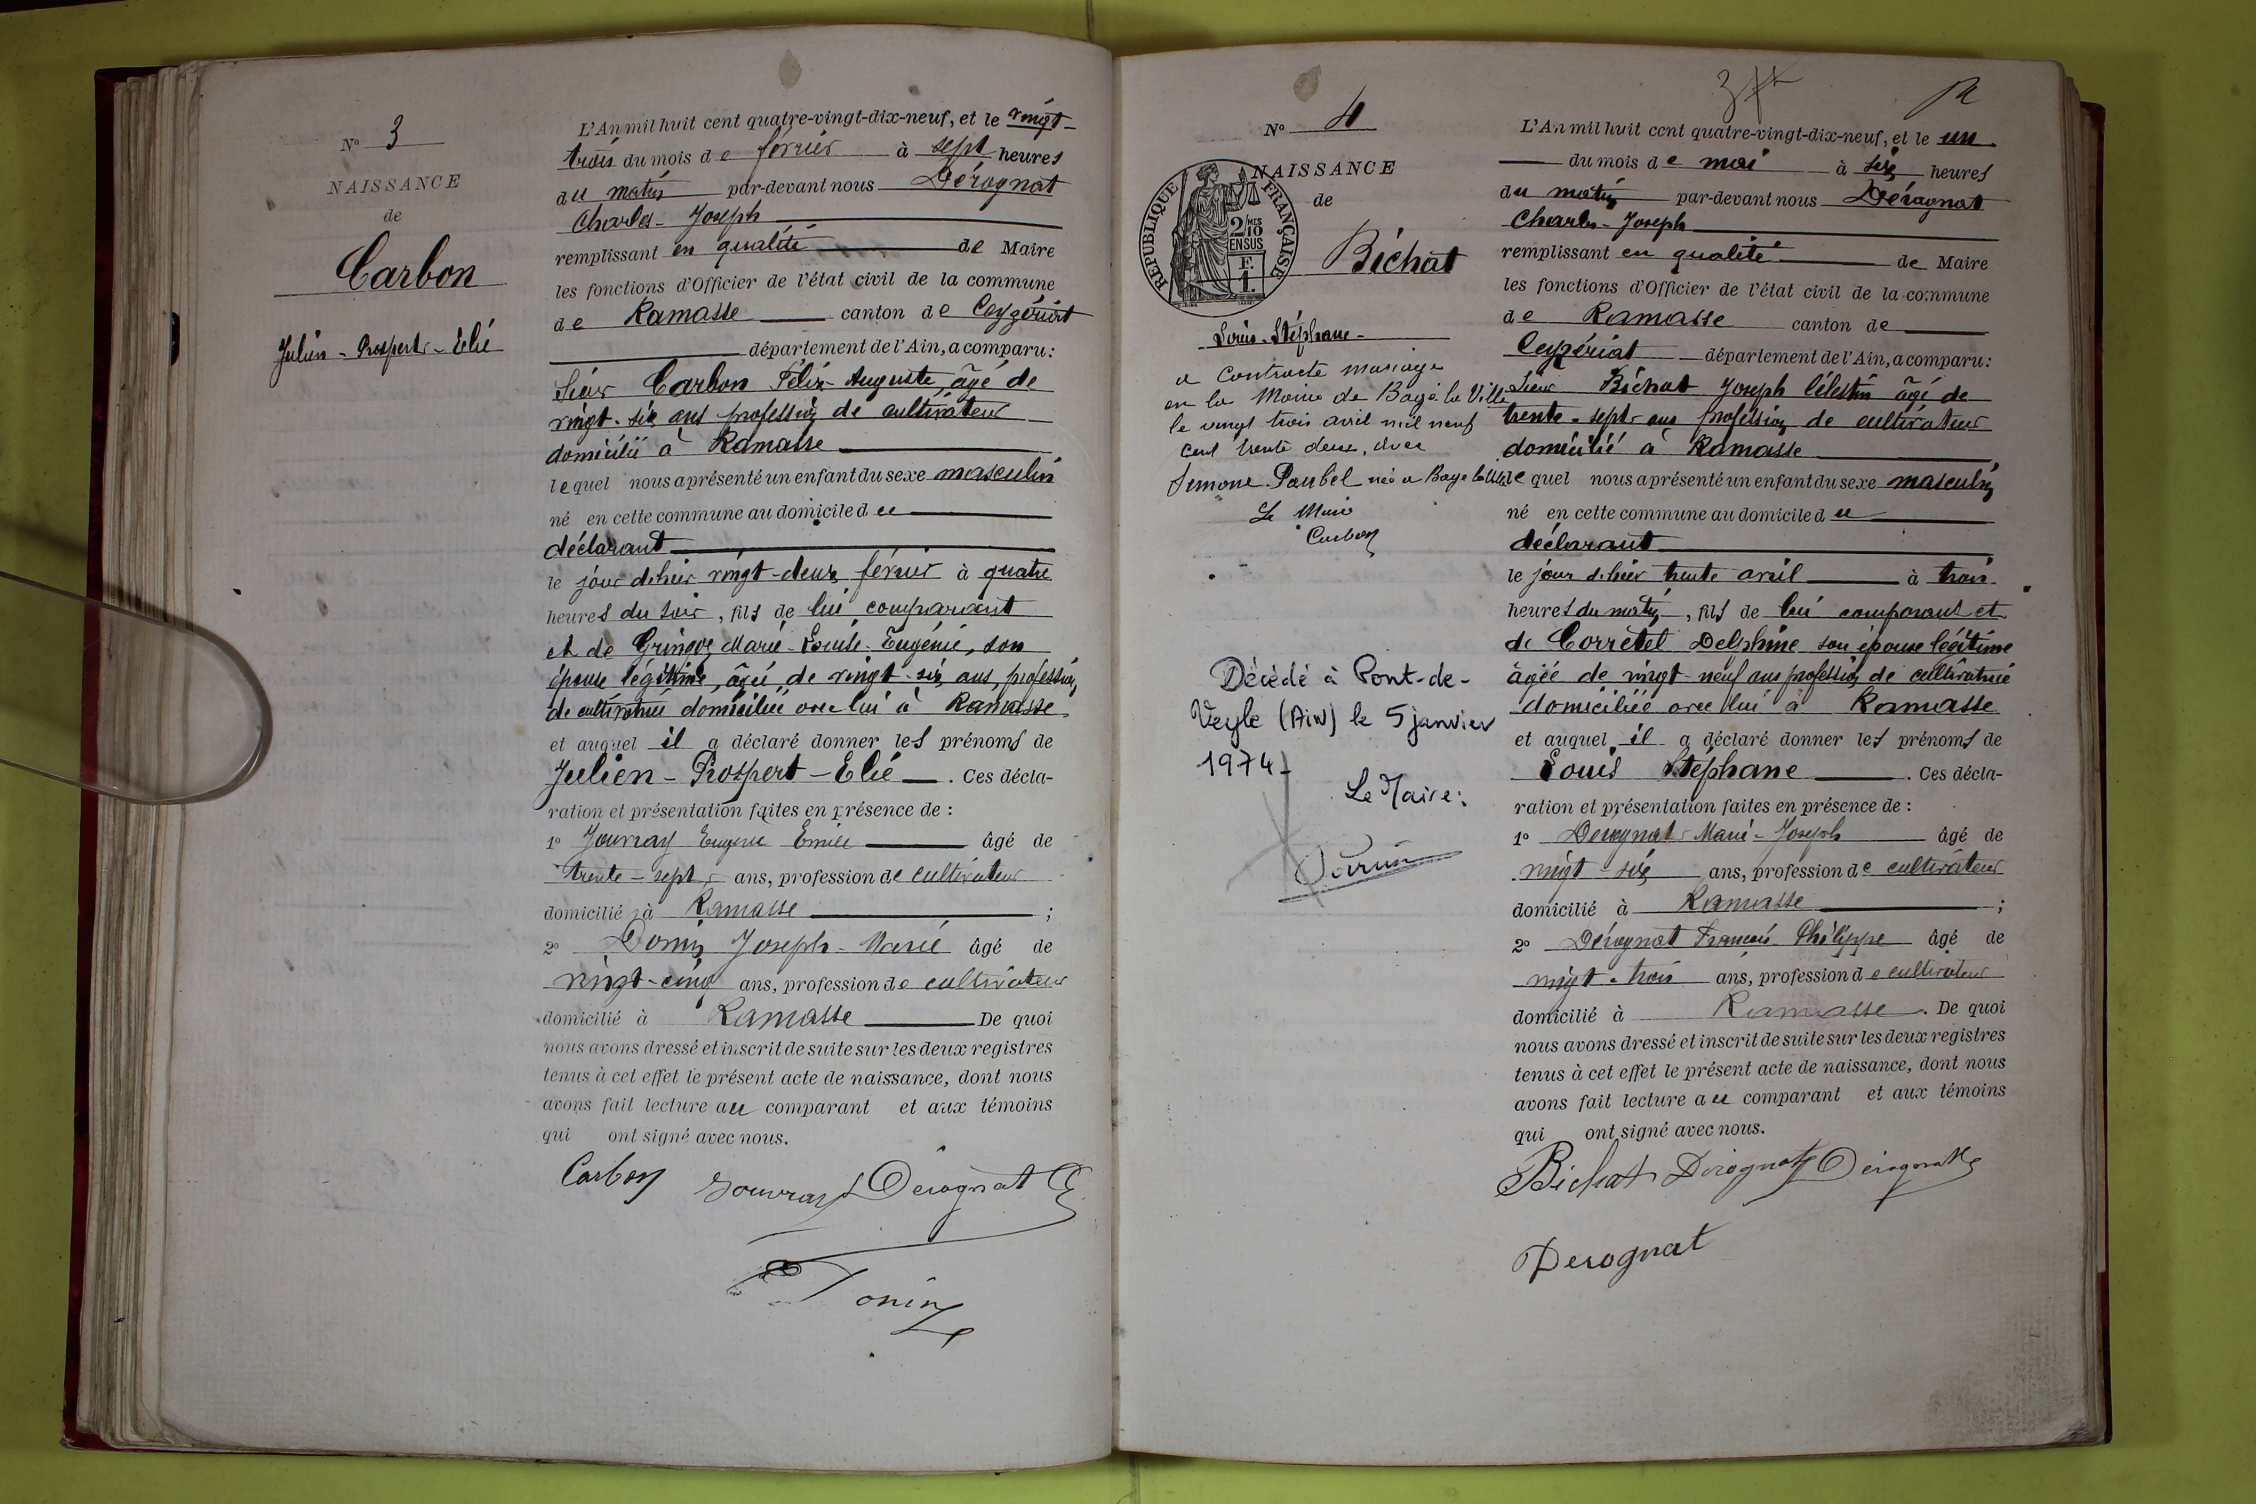 N° 3
NAISSANCE
de
Carbon
Julien - Prospert - Elié
L'An mil huit cent quatre-vingt-dix-neuf, et le vingt-
trois du mois de février à sept heures
du matin par-devant nous Dérognat
Charles - Joseph
remplissant en qualité de Maire
les fonctions d'Officier de l'état civil de la commune
de Ramasse canton de Ceyzériat
département de l'Ain, a comparu:
Sieur Carbon Félix Auguste, âgé de
vingt-six ans profession de cultivateur
domicilié à Ramasse
lequel nous a présenté un enfant du sexe masculin
né en cette commune au domicile du
déclarant
le jour d'hier vingt-deux février à quatre
heures du soir, fils de lui comparant
et de Gringoz Marie-Louise-Eugénie, son
épouse légitime, âgée de vingt-six ans, profession
de cultivatrice domiciliée avec lui à Ramasse
et auquel il a déclaré donner les prénoms de
Julien - Prospert - Elié. Ces décla-
ration et présentation faites en présence de :
1° Jouvray Eugène Emile âgé de
trente-sept ans, profession de cultivateur
domicilié à Ramasse ;
2° Donin Joseph-Marie âgé de
vingt-cinq ans, profession de cultivateur
domicilié à Ramasse De quoi
nous avons dressé et inscrit de suite sur les deux registres
tenus à cet effet le présent acte de naissance, dont nous
avons fait lecture au comparant et aux témoins
qui ont signé avec nous.
Carbon Jouvray Dérognat
Donin
3
N° 4
NAISSANCE
de
RÉPUBLIQUE FRANÇAISE
2/10 MES
EN SUS
F.
1.
Bichat
Louis-Stéphane-
a contracté mariage
en la Mairie de Bagé la Ville
le vingt trois avril mil neuf
cent trente deux, avec
Simone Paubel née a Bagé la Ville
Le Maire
Carbon
Décédé à Pont-de-
Veyle (Ain) le 5 janvier
1974
Le Maire:
L'An mil huit cent quatre-vingt-dix-neuf, et le un
du mois de mai à six heures
du matin par-devant nous Dérognat
Charles-Joseph
remplissant en qualité de Maire
les fonctions d'Officier de l'état civil de la commune
de Ramasse canton de
Ceyzériat département de l'Ain, a comparu:
Sieur Bichat Joseph Célestin âgé de
trente-sept ans profession de cultivateur
domicilié à Ramasse
lequel nous a présenté un enfant du sexe masculin
né en cette commune au domicile du
déclarant
le jour d'hier trente avril à trois
heures du matin, fils de lui comparant et
de Corretel Delphine son épouse légitime
âgée de vingt-neuf ans profession de cultivatrice
domiciliée avec lui à Ramasse
et auquel il a déclaré donner les prénoms de
Louis Stéphane. Ces décla-
ration et présentation faites en présence de :
1° Dérognat Marie-Joseph âgé de
vingt-six ans, profession de cultivateur
domicilié à Ramasse ;
2° Dérognat François Philippe âgé de
vingt-trois ans, profession de cultivateur
domicilié à Ramasse. De quoi
nous avons dressé et inscrit de suite sur les deux registres
tenus à cet effet le présent acte de naissance, dont nous
avons fait lecture au comparant et aux témoins
qui ont signé avec nous.
Bichat Dérognat Dérognat
Derognat